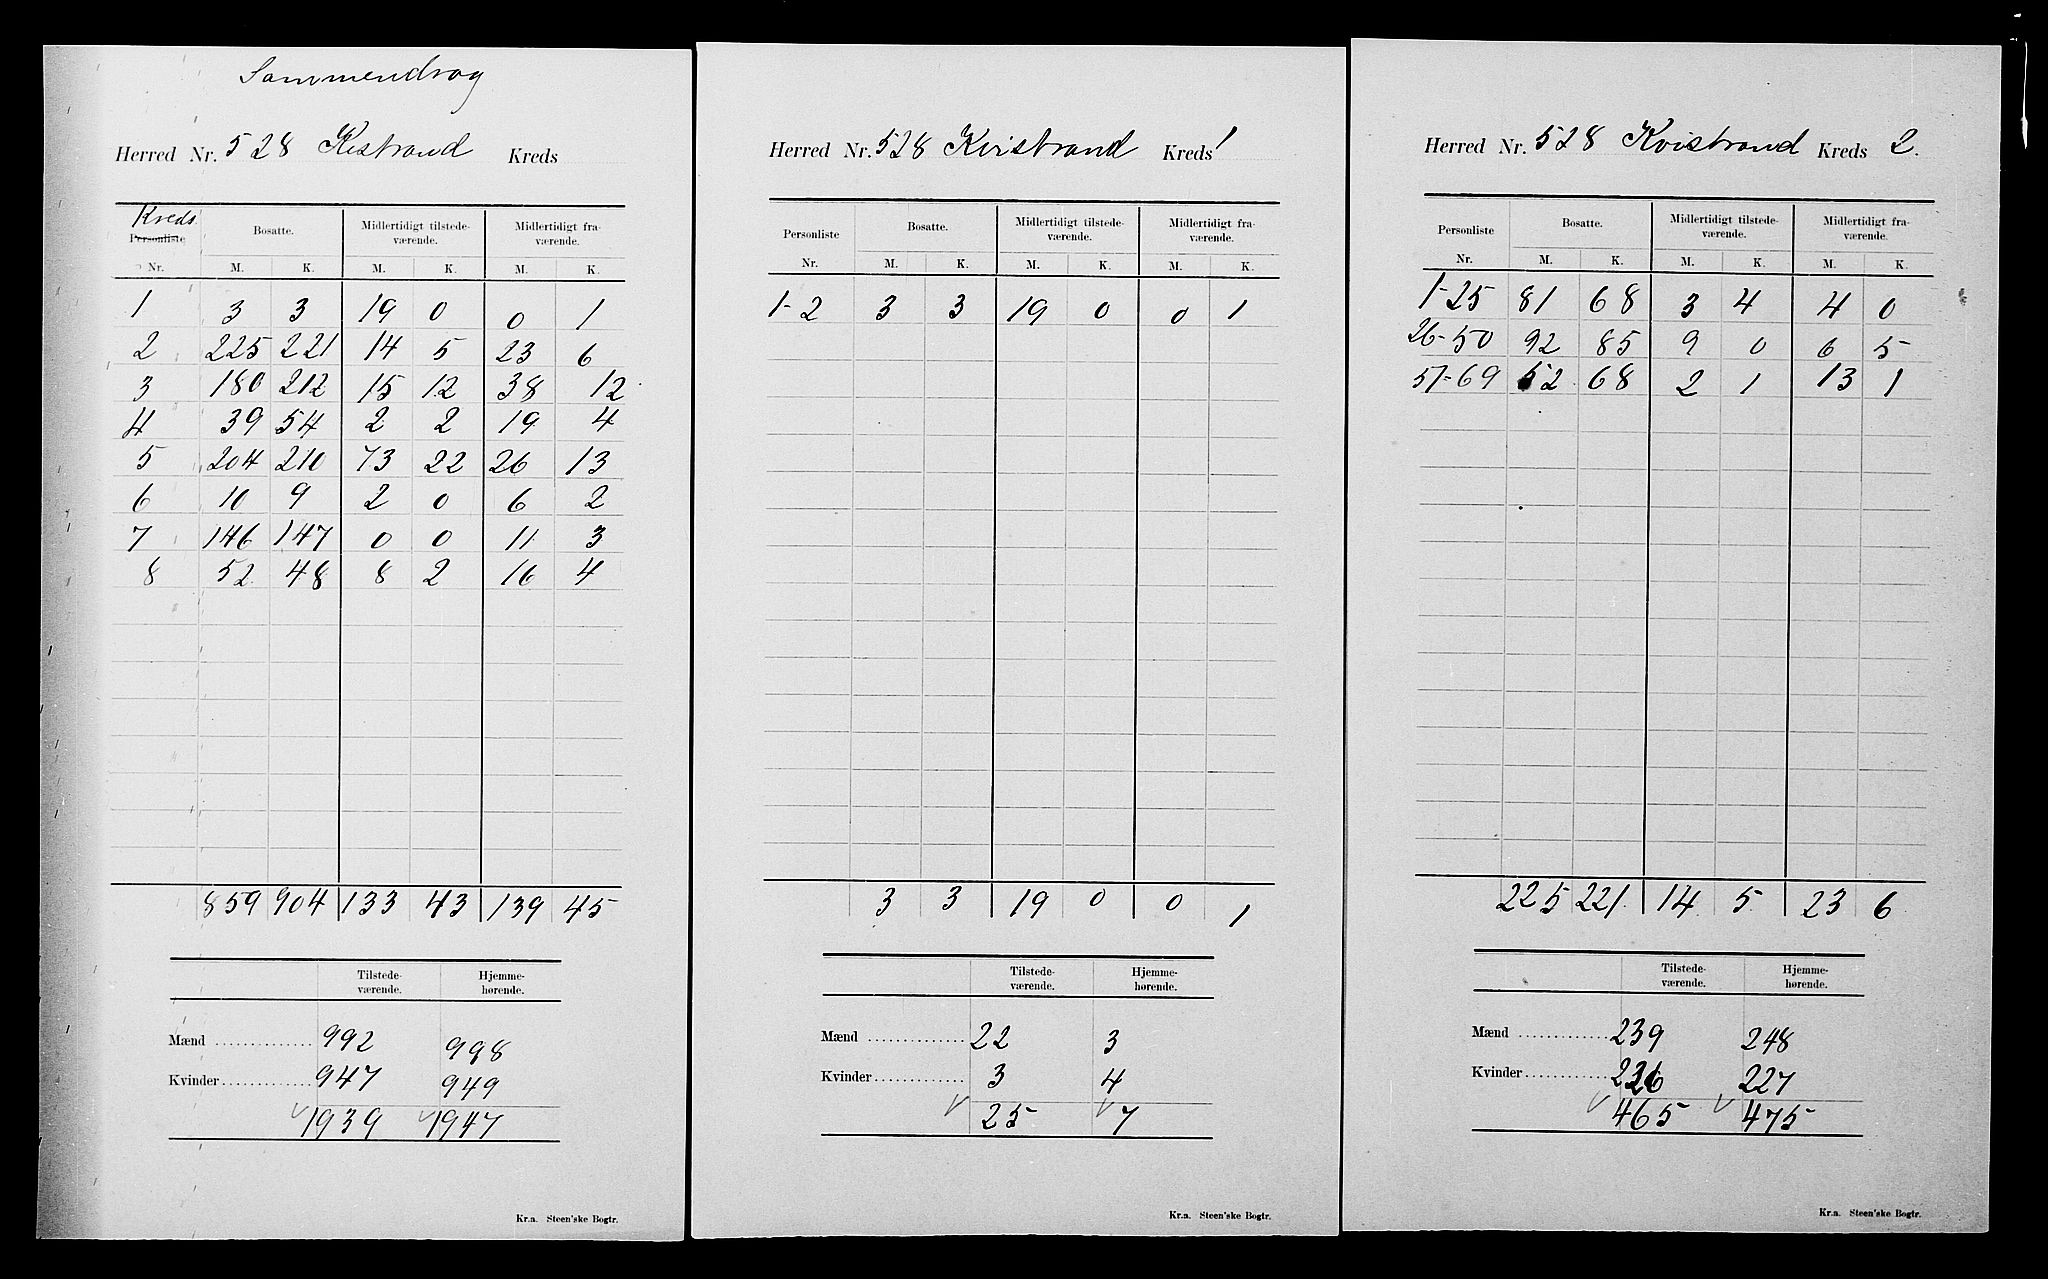 Sammendrag
Herred Nr. 528 Kistrand Kreds
Kreds
Personliste Bosatte. Midlertidigt tilstede- Midlertidigt fra-
værende. værende.
Nr. M. K. M. K. M. K.
1 3 3 19 0 0 1
2 225 221 14 5 23 6
3 180 212 15 12 38 12
4 39 54 2 2 19 4
5 204 210 73 22 26 13
6 10 9 2 0 6 2
7 146 147 0 0 11 3
8 52 48 8 2 16 4
859 904 133 43 139 45
Tilstede- Hjemme-
værende. hørende.
Mænd 992 998
Kvinder 947 949
1939 1947
Kr.a. Steen'ske Bogtr.
Herred Nr. 528 Kvistrand Kreds 1
Personliste Bosatte. Midlertidigt tilstede- Midlertidigt fra-
værende. værende.
Nr. M. K. M. K. M. K.
1-2 3 3 19 0 0 1
3 3 19 0 0 1
Tilstede- Hjemme-
værende. hørende.
Mænd 22 3
Kvinder 3 4
25 7
Kr.a. Steen'ske Bogtr.
Herred Nr. 528 Kvistrand Kreds 2.
Personliste Bosatte. Midlertidigt tilstede- Midlertidigt fra-
værende. værende.
Nr. M. K. M. K. M. K.
1-25 81 68 3 4 4 0
26-50 92 85 9 0 6 5
51-69 52 68 2 1 13 1
225 221 14 5 23 6
Tilstede- Hjemme-
værende. hørende.
Mænd 239 248
Kvinder 226 227
465 475
Kr.a. Steen'ske Bogtr.